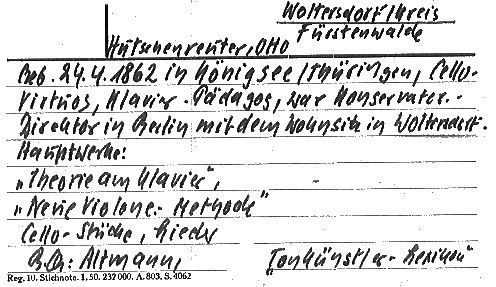 Woltersdorf/Kreis
Fürstenwalde
Hutschenreuter, Otto
Geb. 24.4.1862 in Königsee/Thüringen, Cello-
Virtuos, Klavier-Pädagog, war Konservator.-
Direktor in Berlin mit dem Wohnsitz in Woltersdorf.
Hauptwerke:
„Theorie am Klavier",
„Neue Violonc.-Methode"
Cello-Stücke, Lieder
Altmann, „Tonkünstler-Lexikon"
Reg. 10. Stichnote. 1. 50. 232 000. A. 803. S. 4062